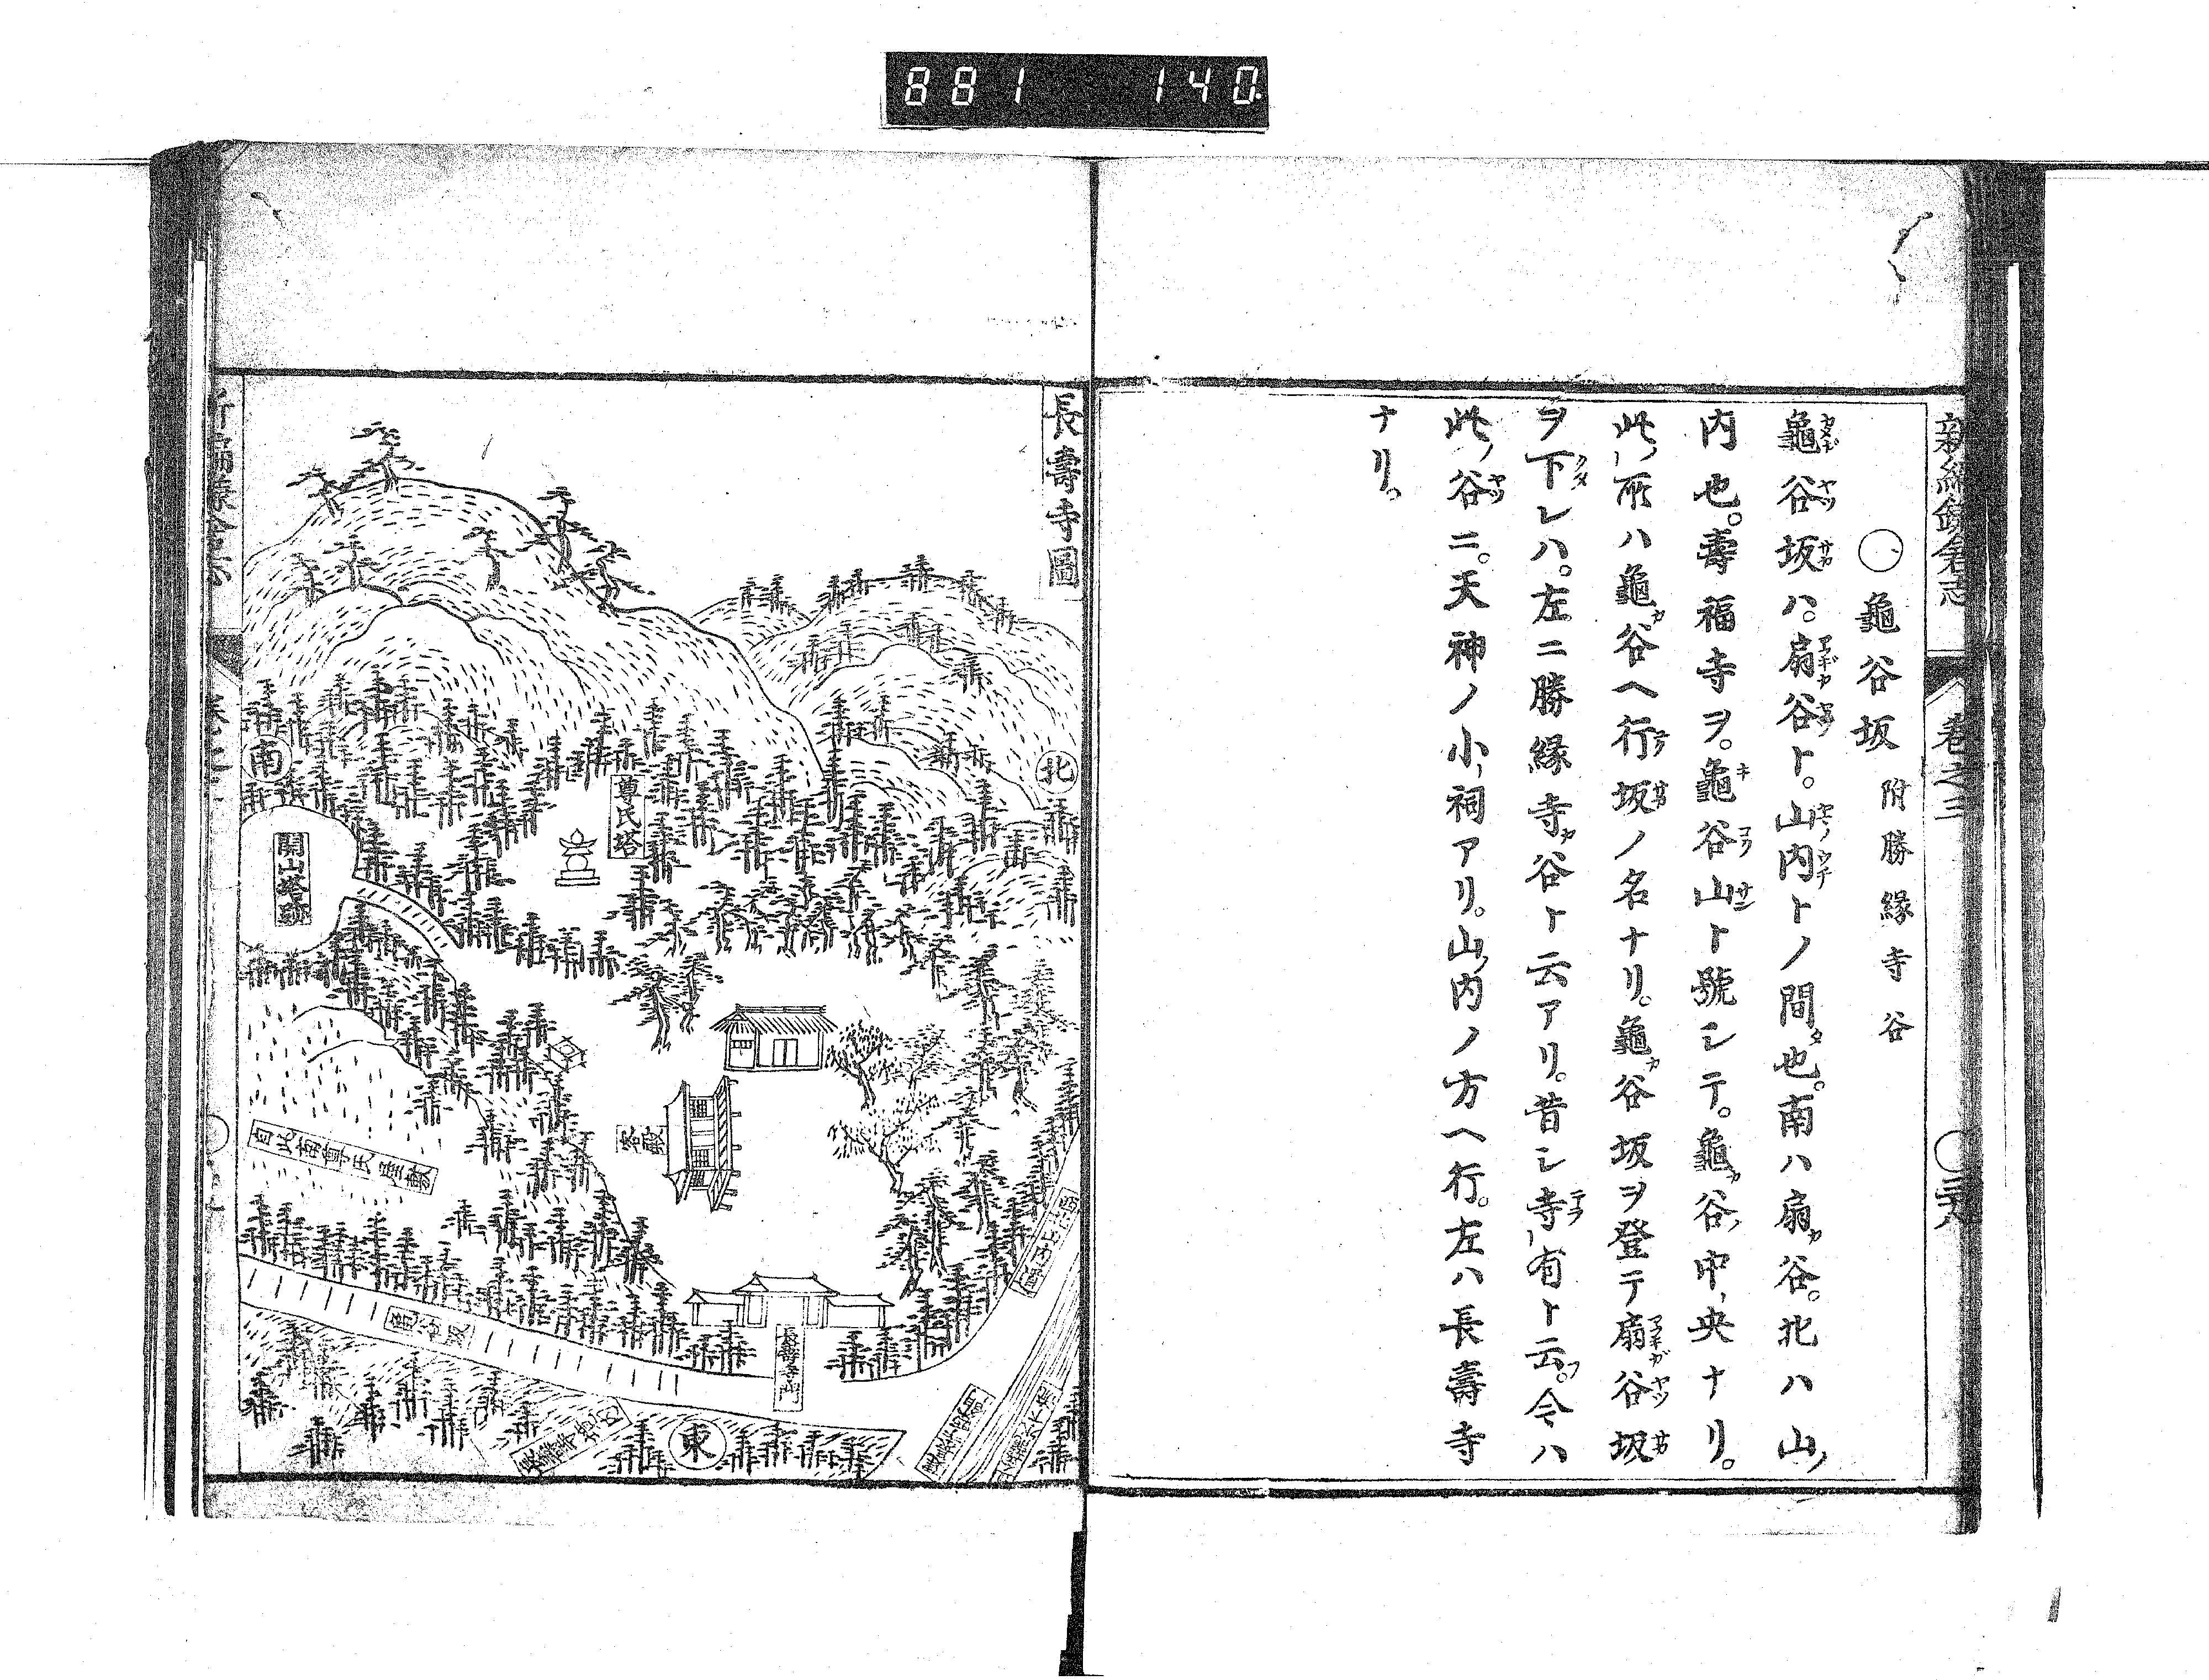 881 140
新編鎌倉志 卷之三 〇二十八
〇龜谷坂 附勝縁寺谷
龜谷坂ハ。扇谷ト。山内トノ間也。南ハ扇谷。北ハ山ノ
内也。壽福寺ヲ。龜谷山ト號シテ。龜谷ノ中央ナリ。
此所ハ龜谷ヘ行坂ノ名ナリ。龜谷坂ヲ登テ扇谷坂
ヲ下レハ。左ニ勝縁寺谷ト云アリ。昔シ寺有ト云。今ハ
此谷ニ。天神ノ小祠アリ。山内ノ方ヘ行。左ハ長壽寺
ナリ。
長壽寺圖
北
尊氏塔
南
開山塔跡
客殿
自此南尊氏屋敷
長壽寺門
龜谷坂
東